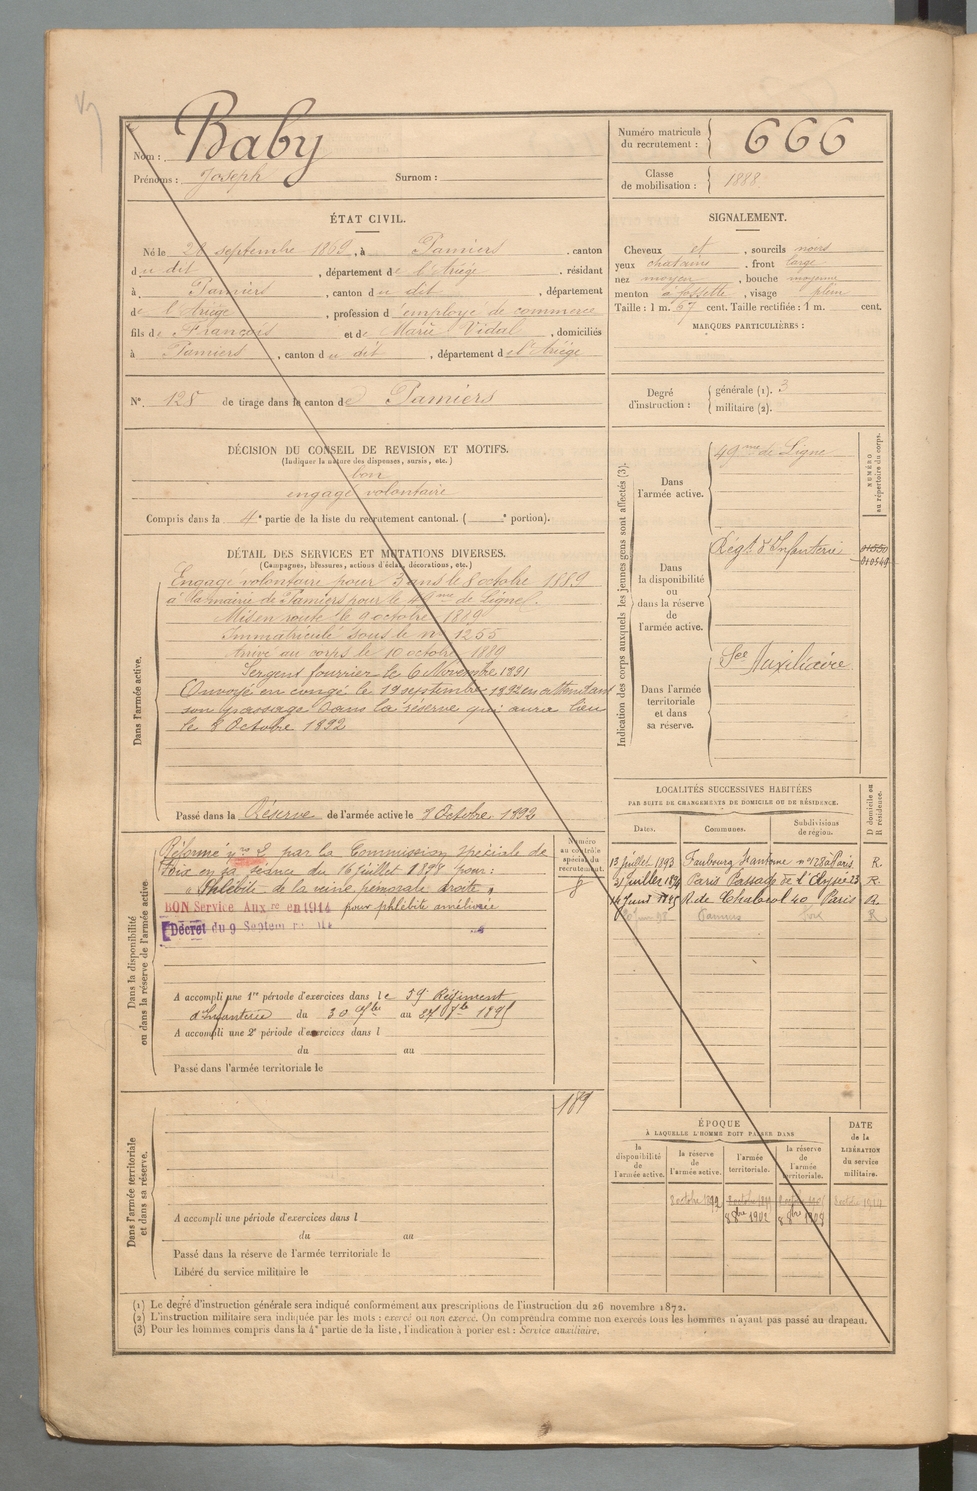 Nom : Baby
Prénoms : Joseph Surnom :
Numéro matricule du recrutement : 666
Classe de mobilisation : 1888
ÉTAT CIVIL.
Né le septembre 1869, à Pamiers, canton
du dit, département de l'Ariége, résidant
à Pamiers, canton du dit, département
de l'Ariége, profession d'employé de commerce
fils de François et de Marie Vidal, domiciliés
à Pamiers, canton du dit, département de l'Ariége
N° 128 de tirage dans le canton de Pamiers
SIGNALEMENT.
Cheveux et, sourcils noirs
yeux chatains, front large
nez moyen, bouche moyenne
menton à fossette, visage plein
Taille : 1 m. 67 cent. Taille rectifiée : 1 m. cent.
MARQUES PARTICULIÈRES :
Degré d'instruction : générale (1). 3
militaire (2).
DÉCISION DU CONSEIL DE REVISION ET MOTIFS.
(Indiquer la nature des dispenses, sursis, etc.)
bon
engagé volontaire
Compris dans la 4e partie de la liste du recrutement cantonal. ( e portion).
DÉTAIL DES SERVICES ET MUTATIONS DIVERSES.
(Campagnes, blessures, actions d'éclat, décorations, etc.)
Dans l'armée active.
Engagé volontaire pour 3 ans le 8 octobre 1889
à la mairie de Pamiers pour le 49me de Ligne.
Mis en route le 9 octobre 1889
Immatriculé sous le no 1255
Arrivé au corps le 10 octobre 1889
Sergent fourrier le 6 Novembre 1891
Envoyé en congé le 19 septembre 1892 en attendant
son passage dans la réserve qui aura lieu
le 8 Octobre 1892
Passé dans la Réserve de l'armée active le 8 Octobre 1892
Indication des corps auxquels les jeunes gens sont affectés (3).
NUMÉRO au répertoire du corps.
Dans l'armée active.
49me de Ligne
Dans la disponibilité ou dans la réserve de l'armée active.
Régt d'Infanterie
010549
Dans l'armée territoriale et dans sa réserve.
Sce Auxiliaire
LOCALITÉS SUCCESSIVES HABITÉES
PAR SUITE DE CHANGEMENTS DE DOMICILE OU DE RÉSIDENCE.
Dates. Communes. Subdivisions de région. D domicile ou R résidence.
13 juillet 1893 Faubourg St Antoine no 128 à Paris R.
31 juillet 1894 Paris Passage de l'Elysée 23 R.
14 1895 R. de Chabrol 40 Paris R.
98 Pamiers Foix R
Dans la disponibilité ou dans la réserve de l'armée active
Numéro au contrôle spécial du recrutement.
Réformé no 2 par la Commission spéciale de
Foix en sa séance du 16 juillet 1898 pour :
"Phlébite de la veine fémorale droite"
BON Service Auxre en 1914 pour phlébite améliorée
Décret du 9 Septembre 14
A accompli une 1re période d'exercices dans le 59e Régiment
d'Infanterie du 30 7bre au 27 8bre 1895
A accompli une 2e période d'exercices dans l
du au
Passé dans l'armée territoriale le
189
Dans l'armée territoriale et dans sa réserve.
A accompli une période d'exercices dans l
du au
Passé dans la réserve de l'armée territoriale le
Libéré du service militaire le
ÉPOQUE
À LAQUELLE L'HOMME DOIT PASSER DANS
la disponibilité de l'armée active. la réserve de l'armée active. l'armée territoriale. la réserve de l'armée territoriale. DATE de la LIBÉRATION du service militaire.
8 octobre 1892
8 8bre 1902 8 8bre 1908
(1) Le degré d'instruction générale sera indiqué conformément aux prescriptions de l'instruction du 26 novembre 1872.
(2) L'instruction militaire sera indiquée par les mots : exercé ou non exercé. On comprendra comme non exercés tous les hommes n'ayant pas passé au drapeau.
(3) Pour les hommes compris dans la 4e partie de la liste, l'indication à porter est : Service auxiliaire.